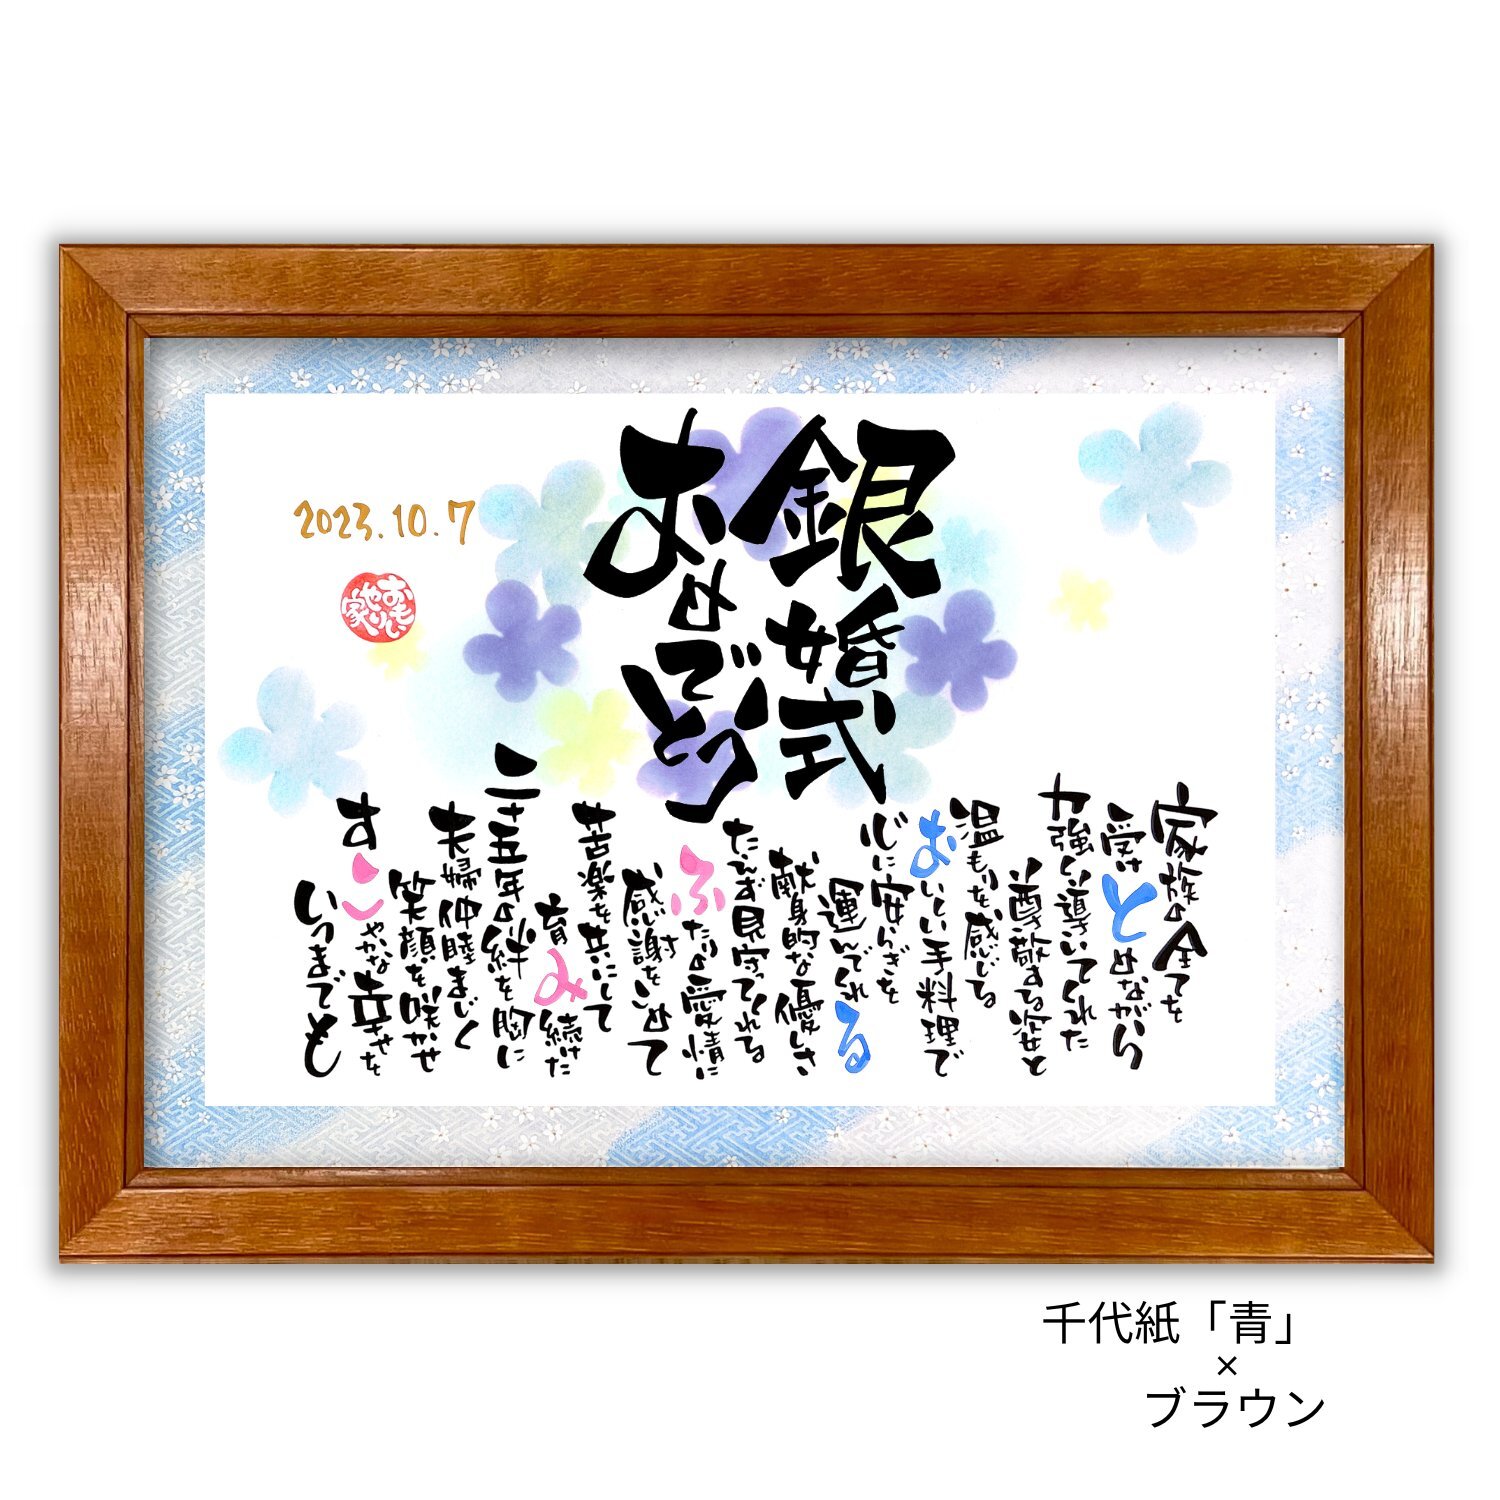 銀婚式
おめでとう
家族の全てを
受けとめながら
力強く導いてくれた
尊敬する姿と
温もりを感じる
おいしい手料理で
心に安らぎを
運んでくれる
献身的な優しさ
たえず見守ってくれる
ふたりの愛情に
感謝をこめて
苦楽を共にして
育み続けた
二十五年の絆を胸に
夫婦仲睦まじく
笑顔を咲かせ
すこやかな幸せを
いつまでも
2023.10.7
おもいやり家
千代紙「青」
×
ブラウン